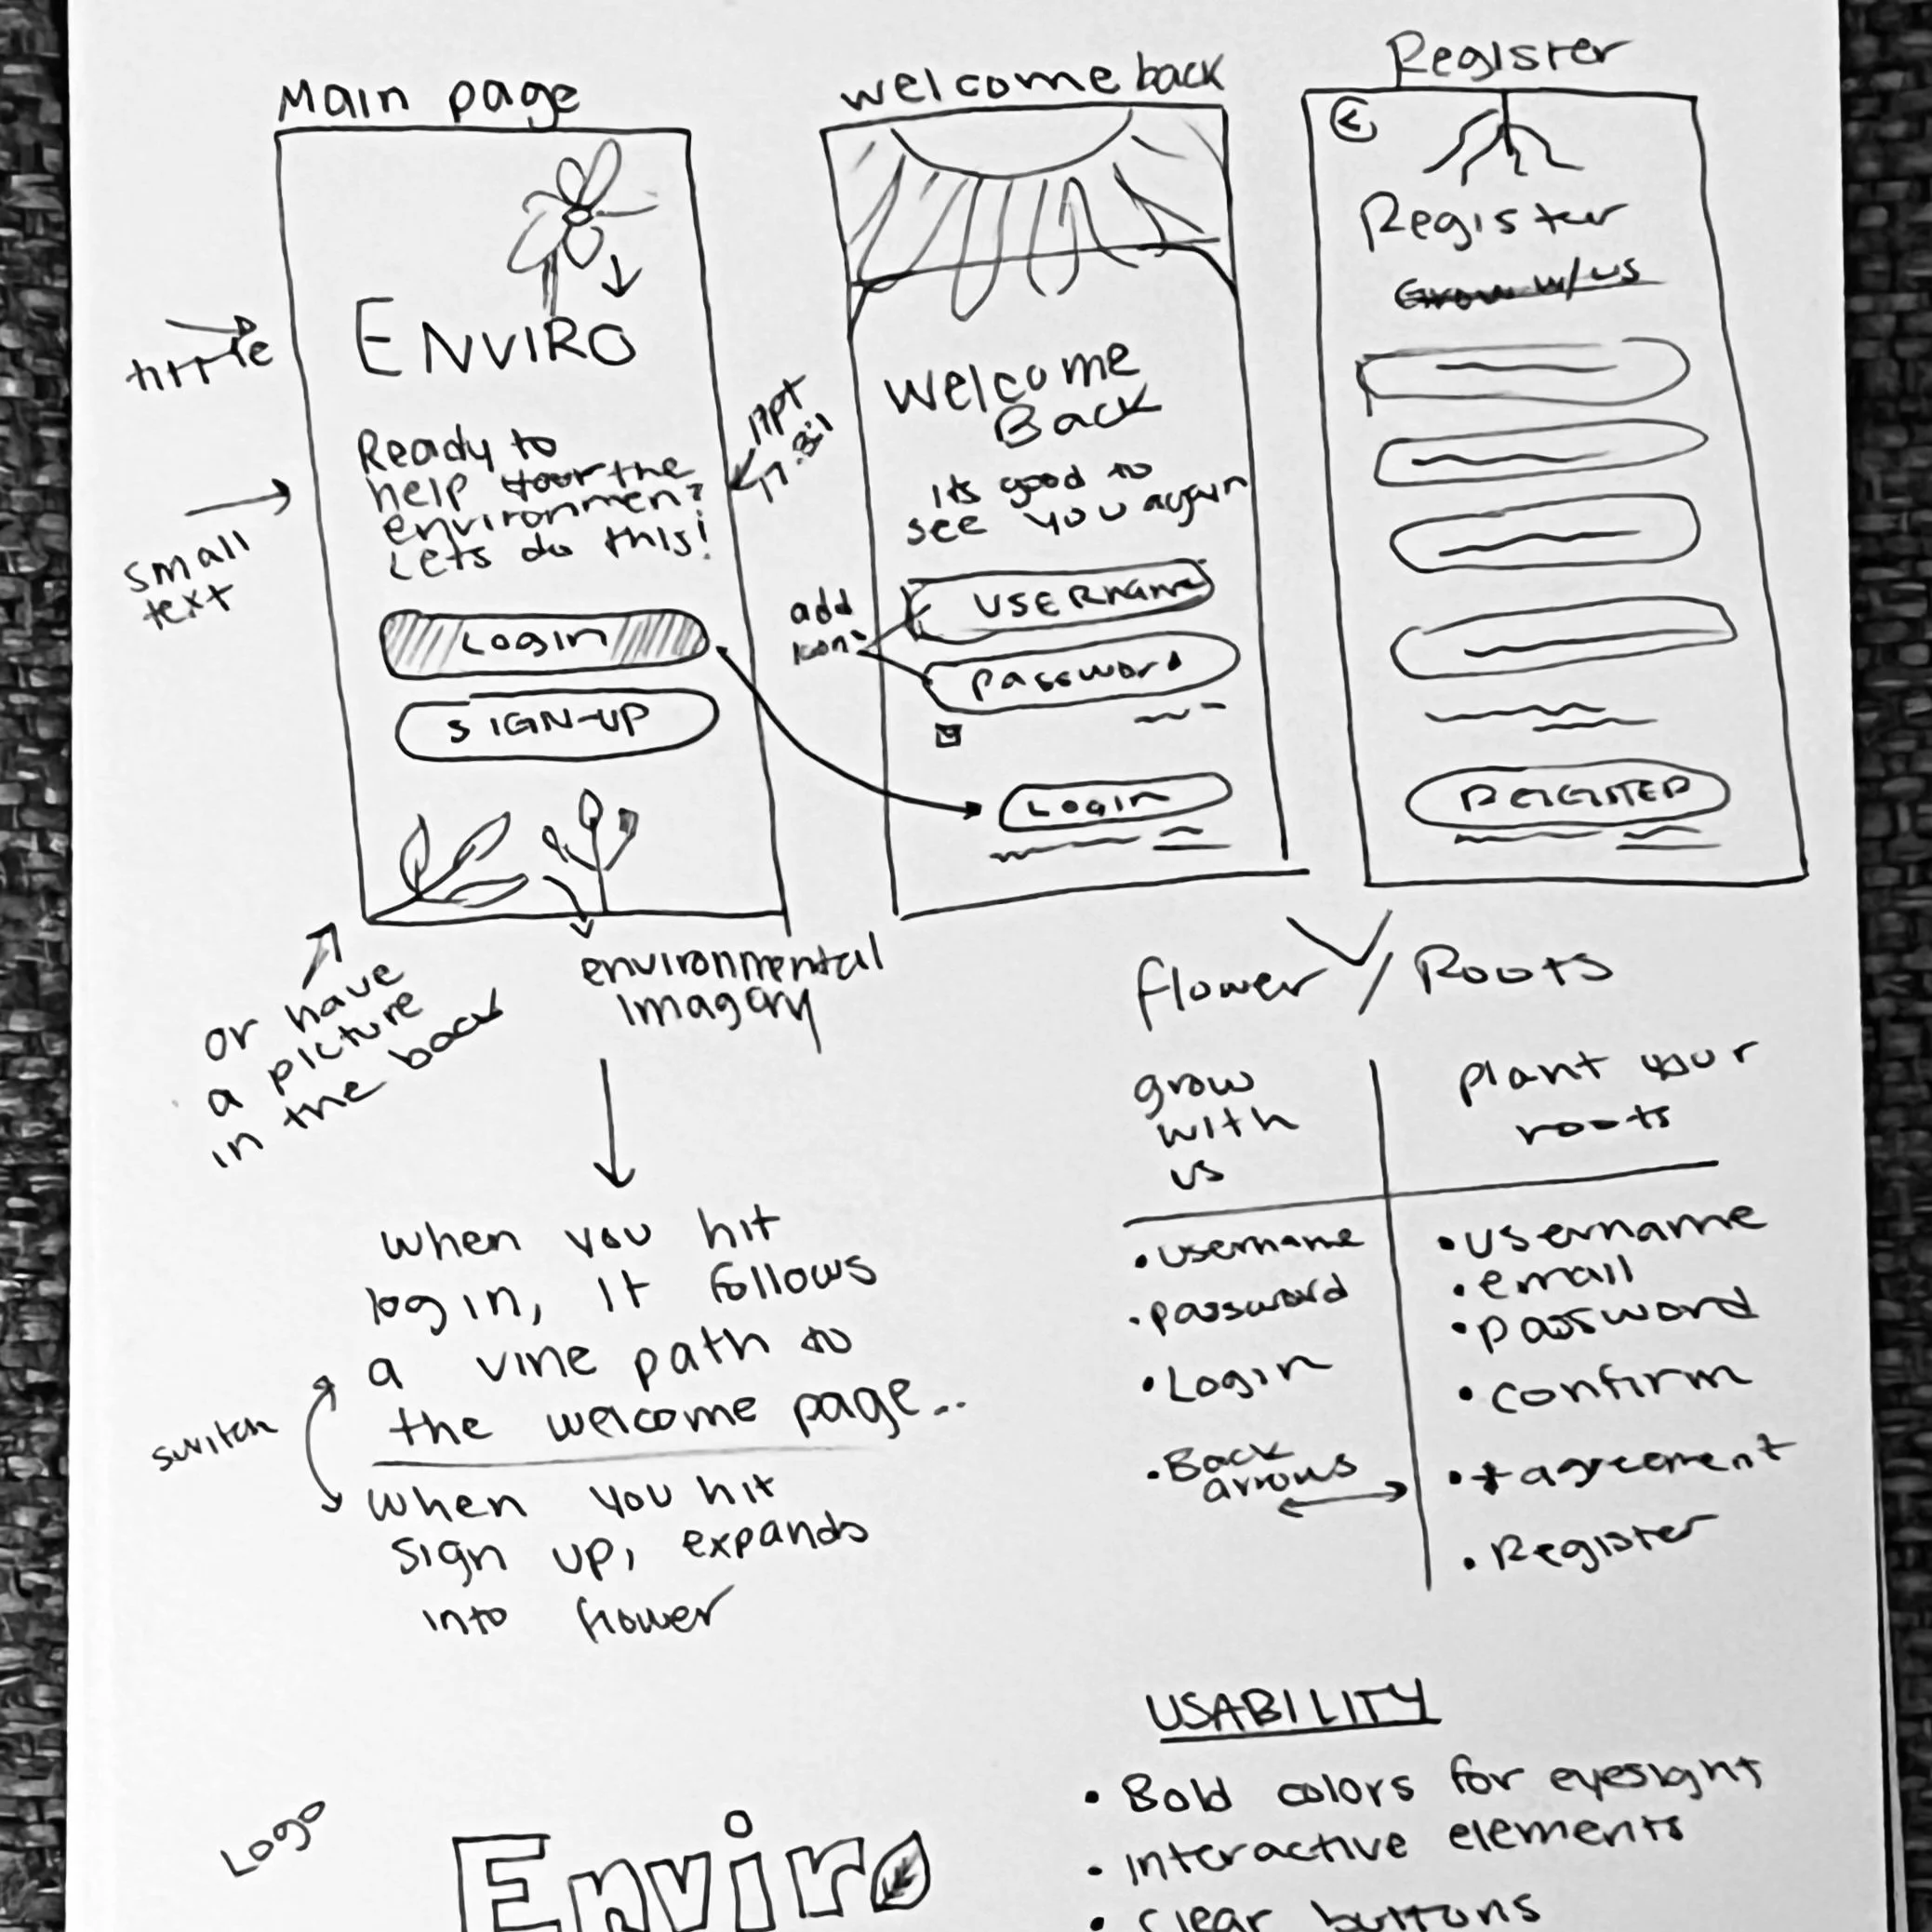 Main page
ENVIRO
Ready to
help your the
environmen?
Lets do this!
LOGIN
SIGN-UP
title
small
text
or have
a picture
in the back
environmental
Imagary
welcome back
Welcome
Back
Its good to
see you again
add
icons
USERname
password
Login
Register
Register
Grow w/us
REGISTER
flower / Roots
grow
with
us
• username
• password
• Login
• Back
arrows
plant your
roots
• username
• email
• password
• confirm
• + agreement
• Register
when you hit
login, it follows
a vine path to
the welcome page...
switch
when you hit
sign up, expands
into flower
USABILITY
• Bold colors for eyesight
• interactive elements
• clear buttons
Logo
Enviro